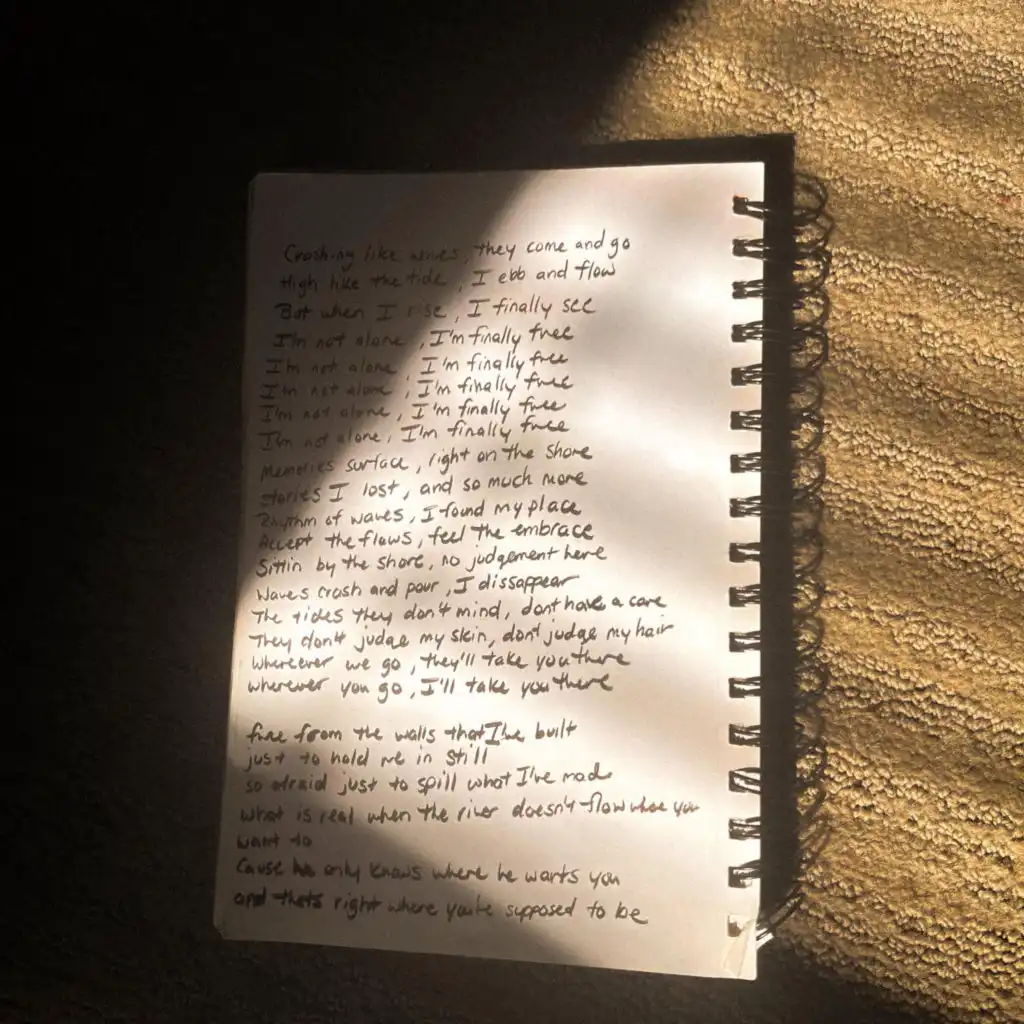 Crashing like waves, they come and go
High like the tide, I ebb and flow
But when I rise, I finally see
I'm not alone, I'm finally free
I'm not alone, I'm finally free
I'm not alone, I'm finally free
I'm not alone, I'm finally free
I'm not alone, I'm finally free
Memories surface, right on the shore
Stories I lost, and so much more
Rhythm of waves, I found my place
Accept the flaws, feel the embrace
Sittin by the shore, no judgement here
Waves crash and pour, I dissappear
The tides they don't mind, dont have a care
They don't judge my skin, don't judge my hair
Whereever we go, they'll take you there
wherever you go, I'll take you there
free from the walls that I've built
just to hold me in still
so afraid just to spill what I've made
what is real when the river doesn't flow where you
want to
Cause he only knows where he wants you
and thats right where you're supposed to be